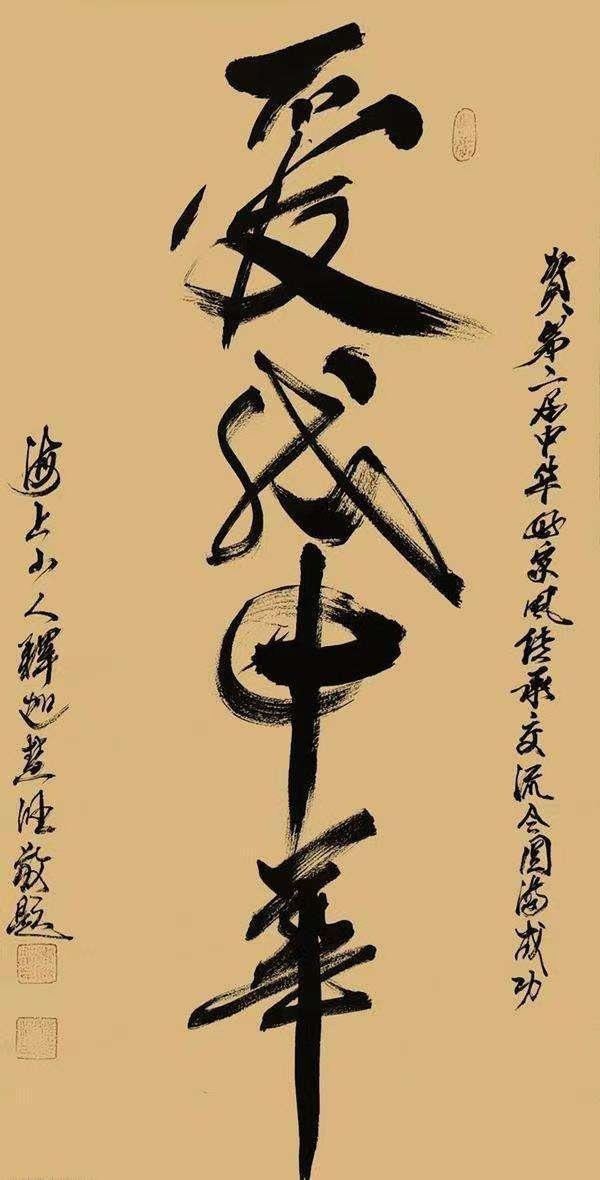 贺第二届中华好家风传承交流会圆满成功
爱我中华
海上山人释迦慧性敬题